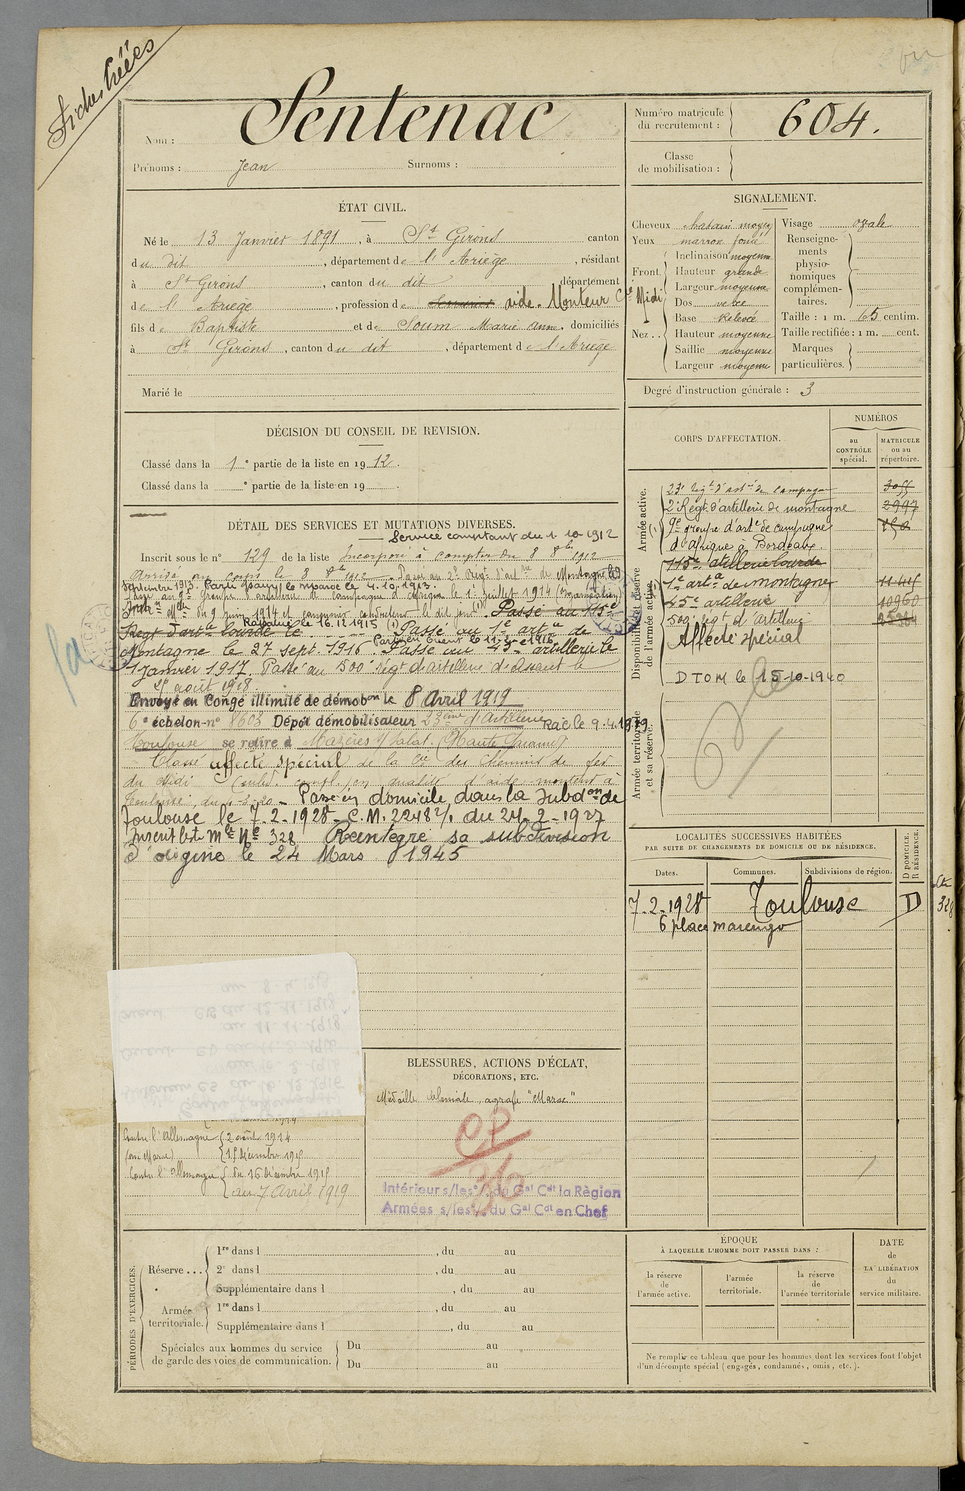 Fiches triées
Nom : Sentenac
Prénoms : Jean Surnoms :
Numéro matricule du recrutement : 604.
Classe de mobilisation :
ÉTAT CIVIL.
Né le 13 Janvier 1891, à St Girons canton
du dit, département de l'Ariège, résidant
à St Girons, canton du dit département
de l'Ariège, profession de aide-Monteur Cie Midi
fils de Baptiste et de Soum Marie Anne, domiciliés
à St Girons, canton du dit, département de l'Ariège
Marié le
SIGNALEMENT.
Cheveux chatain moyen
Yeux marron foncé
Front. Inclinaison moyenne
Hauteur grande
Largeur moyenne
Nez... Dos
Base Relevé
Hauteur moyenne
Saillie moyenne
Largeur moyenne
Visage ovale
Renseignements physionomiques complémentaires.
Taille : 1 m. 65 centim.
Taille rectifiée : 1 m. cent.
Marques particulières.
Degré d'instruction générale : 3
DÉCISION DU CONSEIL DE REVISION.
Classé dans la 1e partie de la liste en 1912.
Classé dans la e partie de la liste en 19
DÉTAIL DES SERVICES ET MUTATIONS DIVERSES.
Service comptant du 1-10-1912
Inscrit sous le no 129 de la liste Incorporé à compter du 8 8bre 1912
Arrivé au corps le 8 8bre 1912. Passé au 2e Régt d'artie de Montagne le
Septembre 1913.
Passé au 9e Groupe d'artillerie de campagne d'Afrique le 1er juillet 1914
du 9 juin 1914 Passé au 115e
Régt d'artie lourde le Rapatrié le 16.12.1915 (1) Passé au 1e artie de
Montagne le 27 sept. 1916 Passé au 45e artillerie le
1 Janvier 1917. Passé au 500e Régt d'artillerie d'assaut le
25 août 1918
Envoyé en Congé illimité de démobon le 8 Avril 1919
6e échelon no 8603 Dépôt démobilisateur 23ème d'Artillerie
Toulouse se retire à Mazères s/ Salat. (Haute Garonne)
Classé affecté spécial de la Cie des Chemins de fer
du Midi en qualité d'aide monteur à
Toulouse, du
Passé en domicile dans la Subdon de
Toulouse le 7-2-1928 - C.M. 2248 2/1 du 24-2-1927
Inscrit liste Mle No 328 Réintégré sa subdivision
d'origine le 24 Mars 1945
CORPS D'AFFECTATION.
NUMÉROS
au CONTRÔLE spécial.
MATRICULE ou au répertoire.
Armée active.
23e Régt d'artie de campagne
2e Régt d'artillerie de montagne 2997
9e groupe d'artie de campagne
d'Afrique à Bordeaux.
Disponibilité et réserve de l'armée active.
115e artillerie lourde
1e artie de montagne
45e artillerie 10960
500e régt d'artillerie
Affecté spécial
DTOM le 15-10-1940
Armée territoriale et sa réserve.
LOCALITÉS SUCCESSIVES HABITÉES
PAR SUITE DE CHANGEMENTS DE DOMICILE OU DE RÉSIDENCE.
Dates. Communes. Subdivisions de région. D DOMICILE. R RÉSIDENCE.
7-2-1928 Toulouse D
6 place marengo
328
BLESSURES, ACTIONS D'ÉCLAT,
DÉCORATIONS, ETC.
Médaille coloniale, agrafe "Maroc"
CP
36
Intérieur s/les o/ du Gal Cdt la Région
Armées s/les o/ du Gal Cdt en Chef
Contre l'Allemagne 2 août 1914
(au Maroc) 15 décembre 1915
Contre l'Allemagne du 16 décembre 1915
au 7 Avril 1919
PÉRIODES D'EXERCICES.
Réserve... 1re dans l , du au
2e dans l , du au
Supplémentaire dans l , du au
Armée territoriale. 1re dans l , du au
Supplémentaire dans l , du au
Spéciales aux hommes du service de garde des voies de communication. Du au
Du au
ÉPOQUE
À LAQUELLE L'HOMME DOIT PASSER DANS :
la réserve de l'armée active.
l'armée territoriale.
la réserve de l'armée territoriale
DATE de LA LIBÉRATION du service militaire.
Ne remplir ce tableau que pour les hommes dont les services font l'objet
d'un décompte spécial (engagés, condamnés, omis, etc.).